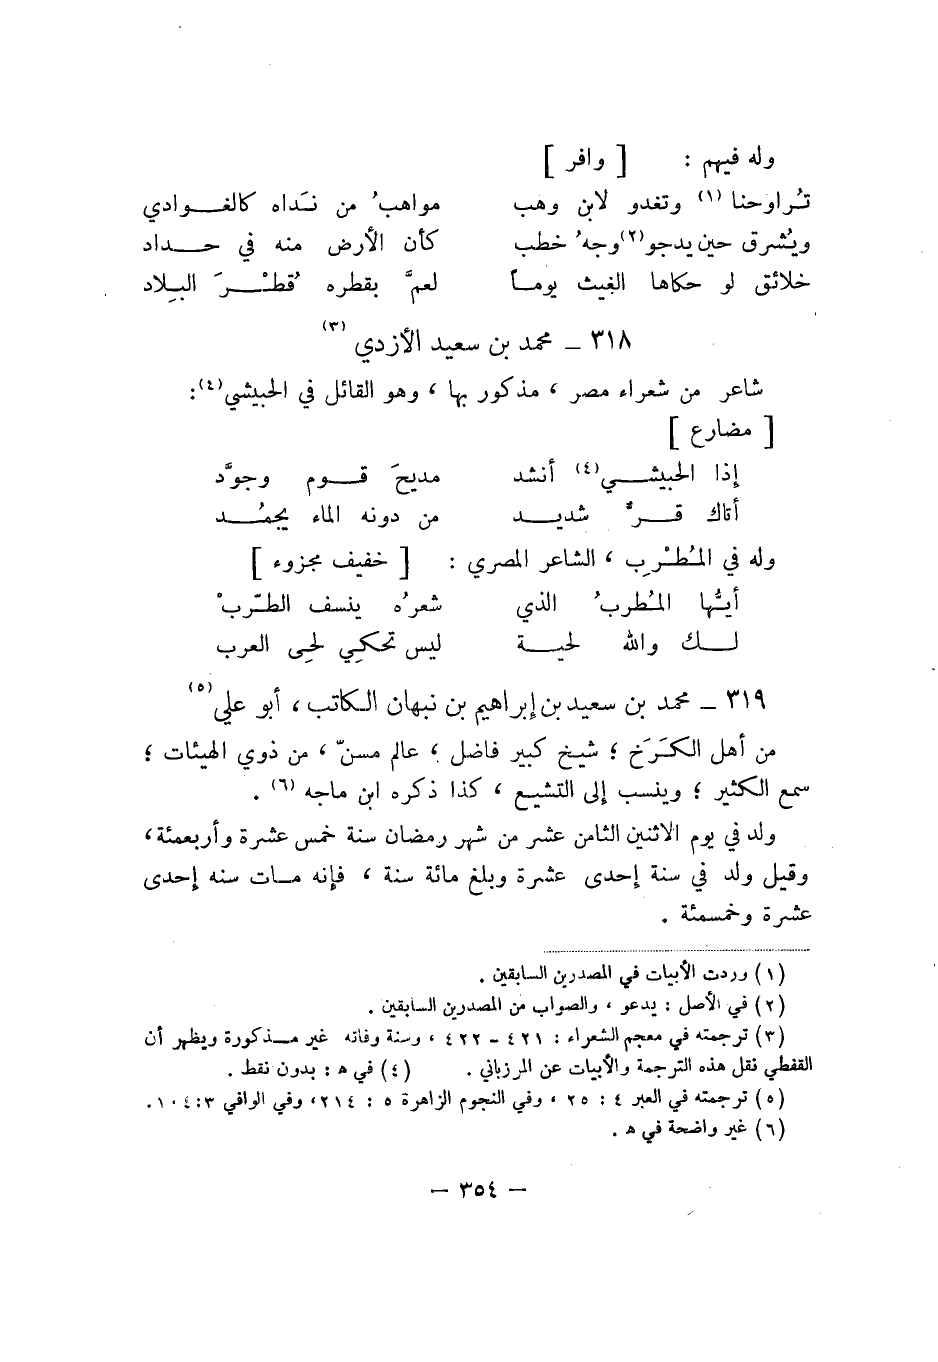 وله فيهم : [ وافر ]
تُراوحنا (١) وتغدو لابن وهب مواهبُ من نَداه كالغوادي
ويُشرق حين يدجو(٢) وجهُ خطب كأن الأرض منه في حداد
خلائق لو حكاها الغيث يوماً لعمَّ بقطره قُطْرَ البلاد
٣١٨ – محمد بن سعيد الأزدي (٣)
شاعر من شعراء مصر ، مذكور بها ، وهو القائل في الحبيشي(٤):
[ مضارع ]
إذا الحبيشي(٤) أنشد مديحَ قوم وجوَّد
أتاك قرٌّ شديد من دونه الماء يجمُد
وله في المُطْرِب ، الشاعر المصري : [ خفيف مجزوء ]
أيُّها المُطربُ الذي شعرُه ينسف الطّربْ
لك والله لحية ليس تحكي لحى العرب
٣١٩ – محمد بن سعيد بن إبراهيم بن نبهان الكاتب ، أبو علي (٥)
من أهل الكَرَخ ؛ شيخ كبير فاضل ، عالم مسنّ ، من ذوي الهيئات ؛
سمع الكثير ؛ وينسب إلى التشيع ، كذا ذكره ابن ماجه (٦) .
ولد في يوم الاثنين الثامن عشر من شهر رمضان سنة خمس عشرة وأربعمئة ،
وقيل ولد في سنة إحدى عشرة وبلغ مائة سنة ، فإنه مات سنه إحدى
عشرة وخمسمئة .
(١) وردت الأبيات في المصدرين السابقين .
(٢) في الأصل : يدعو ، والصواب من المصدرين السابقين .
(٣) ترجمته في معجم الشعراء : ٤٢١ – ٤٢٢ ، وسنة وفاته غير مذكورة ويظهر أن
القفطي نقل هذه الترجمة والأبيات عن المرزباني . (٤) في ه : بدون نقط .
(٥) ترجمته في العبر ٤ : ٢٥ ، وفي النجوم الزاهرة ٥ : ٢١٤، وفي الوافي ٣:١٠٤ .
(٦) غير واضحة في ه .
– ٣٥٤ –